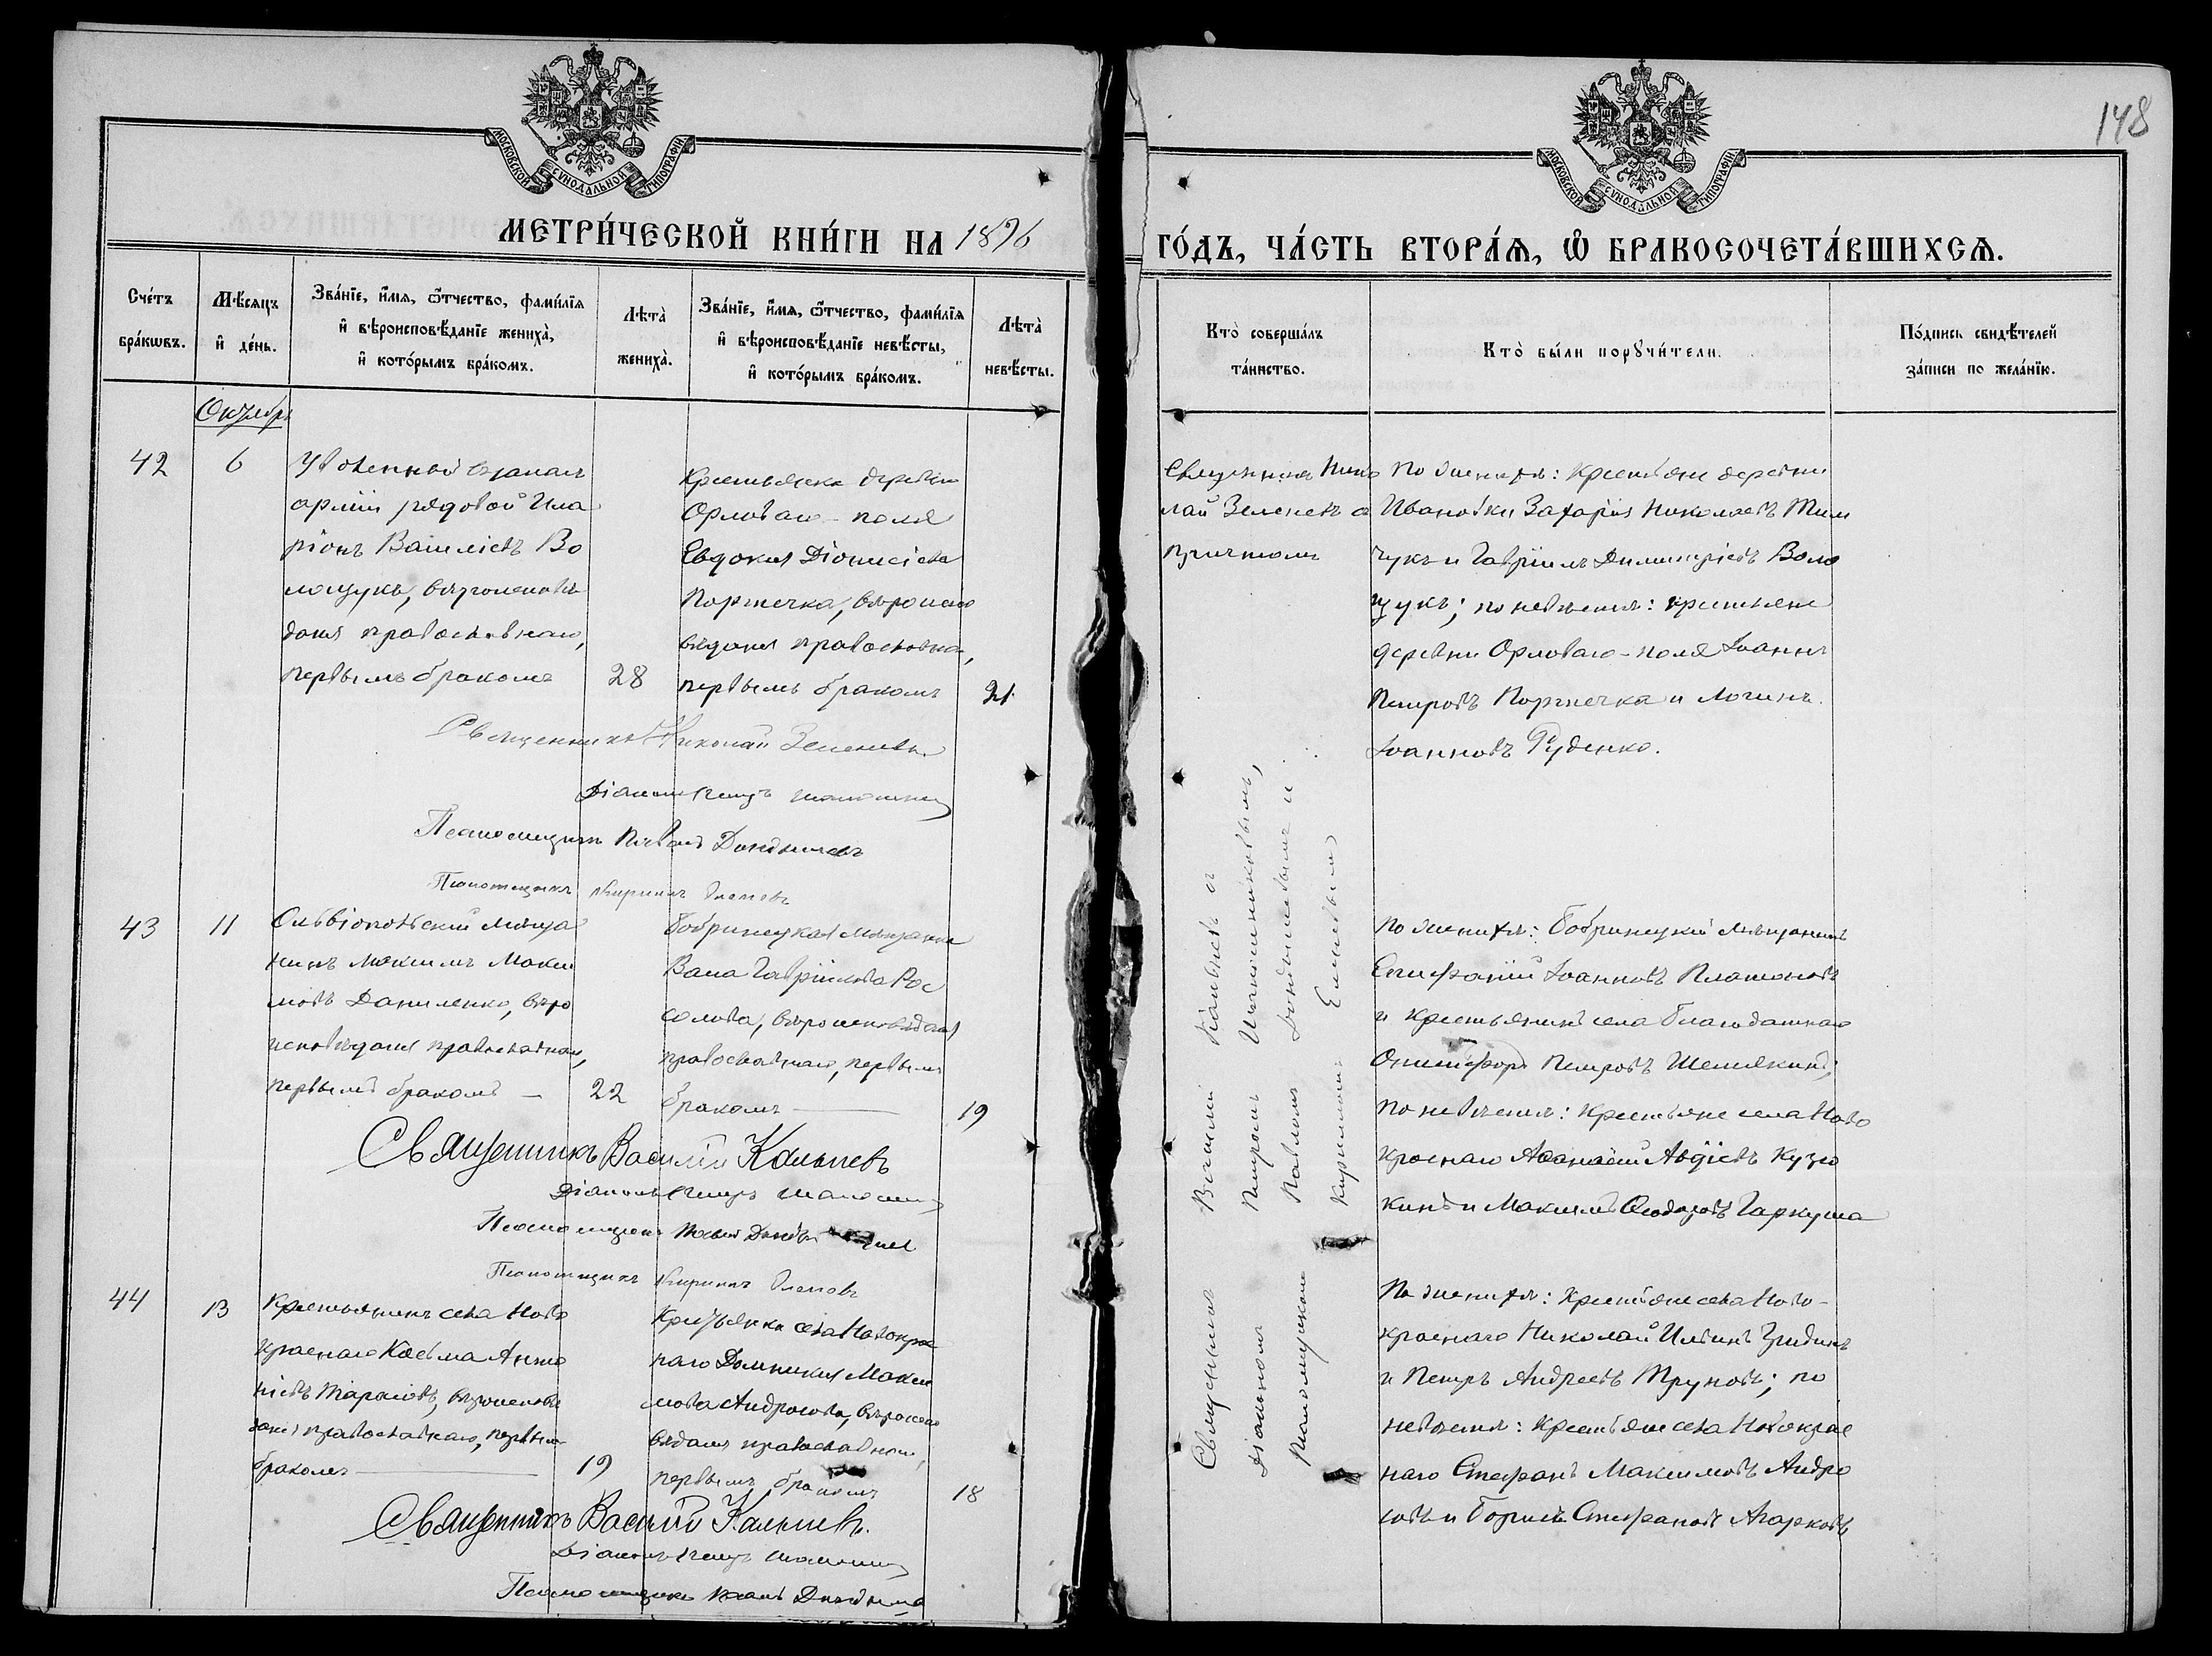 148
МОСКОВСКОЙ СѴНОДАЛЬНОЙ ТИПОГРАФІИ
МОСКОВСКОЙ СѴНОДАЛЬНОЙ ТИПОГРАФІИ
МЕТРИ́ЧЕСКОЙ КНИ́ГИ НА 1896
ГО́ДЪ, ЧА́СТЬ ВТОРА́Ѧ, Ѽ БРАКОСОЧЕТА́ВШИХСѦ.
Сче́тъ бра́кѡвъ.
Мѣ́сяцъ и҆ де́нь.
Зва́нїе, и҆́мѧ, ѻ҆́тчество, фами́лїѧ
и҆ вѣроисповѣ́данїе жениха̀,
и҆ кото́рымъ бра́комъ.
Лѣта̀ жениха̀.
Зва́нїе, и҆́мѧ, ѻ҆́тчество, фами́лїѧ
и҆ вѣроисповѣ́данїе невѣ́сты,
и҆ кото́рымъ бра́комъ.
Лѣта̀ невѣ́сты.
Кто̀ соверша́лъ та́инство.
Кто̀ бы́ли порꙋчи́тели.
По́дпись свидѣ́телей за́писи по жела́нїю.
Октябрь
42
6
Уволенный въ запасъ
арміи рядовой Ила
ріонъ Васильевъ Во
лощукъ, вѣроисповѣ
данія православнаго,
первымъ бракомъ
28
Крестьянка деревни
Орловаго-поля
Евдокія Діонисіева
Поржечка, вѣроиспо
вѣданія православна,
первымъ бракомъ
21
Священникъ Нико
лай Зеленевъ съ
причтомъ
По женихѣ: крестьяне деревни
Ивановки Захарія Николаевъ Тим
чукъ и Гавріилъ Димитріевъ Воло
щукъ; по невѣстѣ: крестьяне
деревни Орловаго-поля Іоаннъ
Петровъ Поржечка и Логинъ
Іоанновъ Руденко.
Священникъ Николай Зеленевъ.
Діаконъ Петръ
Псаломщикъ Павелъ
Псаломщикъ Кириллъ
43
11
мѣща
нинъ Максимъ Макси
мовъ Даниленко, вѣро
исповѣданія православнаго,
первымъ бракомъ —
22
Бобринецкая мѣщанка
Васса Гавріилова Рос
солова, вѣроисповѣданія
православнаго, первымъ
бракомъ —
19
По женихѣ: Бобринецкій мѣщанинъ
Епифаній Іоанновъ Платоновъ
и крестьянинъ села Благодатнаго
Онисифоръ Петровъ Шемякинъ;
по невѣстѣ: крестьяне села Ново
краснаго Аѳанасій Авдіевъ Кузю
кинъ и Максимъ Ѳеодоровъ Гаркуша
Священникъ Василій Кальневъ
Діаконъ Петръ
Псаломщикъ Павелъ
Псаломщикъ Кириллъ
44
13
Крестьянинъ села Ново
краснаго Косьма Анто
ніевъ Тарасовъ, вѣроисповѣ
данія православнаго, первымъ
бракомъ —
19
Крестьянка села Новокрас
наго Домникія Макси
мова Андросова, вѣроиспо
вѣданія православнаго,
первымъ бракомъ
18
По женихѣ: крестьяне села Ново-
краснаго Николай Ильинъ Гридинъ
и Петръ Андреевъ Труновъ; по
невѣстѣ: крестьяне села Новокрас
наго Стефанъ Максимовъ Андро
совъ и Борисъ Стефановъ Агарковъ
Священникъ Василій Кальневъ.
Діаконъ Петръ
Псаломщикъ Павелъ
Священникъ Василій Кальневъ съ
Діакономъ Петромъ
Псаломщиками Павломъ и
Кирилломъ